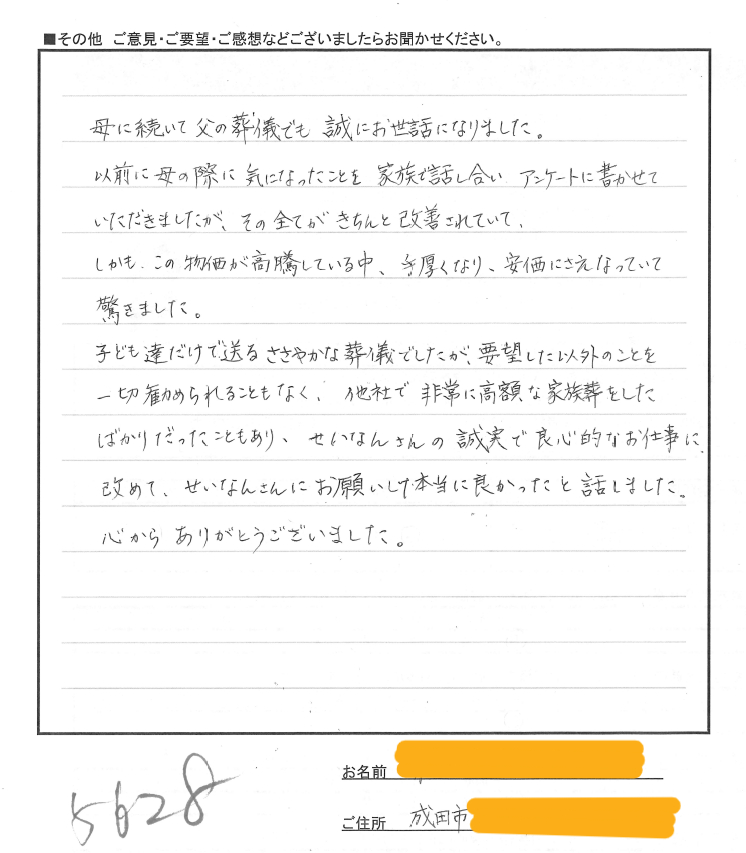 ■その他 ご意見・ご要望・ご感想などございましたらお聞かせください。
母に続いて父の葬儀でも 誠にお世話になりました。
以前に母の際に気になったことを 家族で話し合い アンケートに書かせて
いただきましたが、その全てが きちんと改善されていて、
しかも、この物価が高騰している中、手厚くなり、安価にさえなっていて
驚きました。
子ども達だけで送るささやかな葬儀でしたが、要望した以外のことを
一切勧められることもなく、他社で非常に高額な家族葬をした
ばかりだったこともあり、せいなんさんの誠実で良心的なお仕事に、
改めて、せいなんさんにお願いして本当に良かったと話しました。
心から ありがとうございました。
5628
お名前
ご住所 成田市